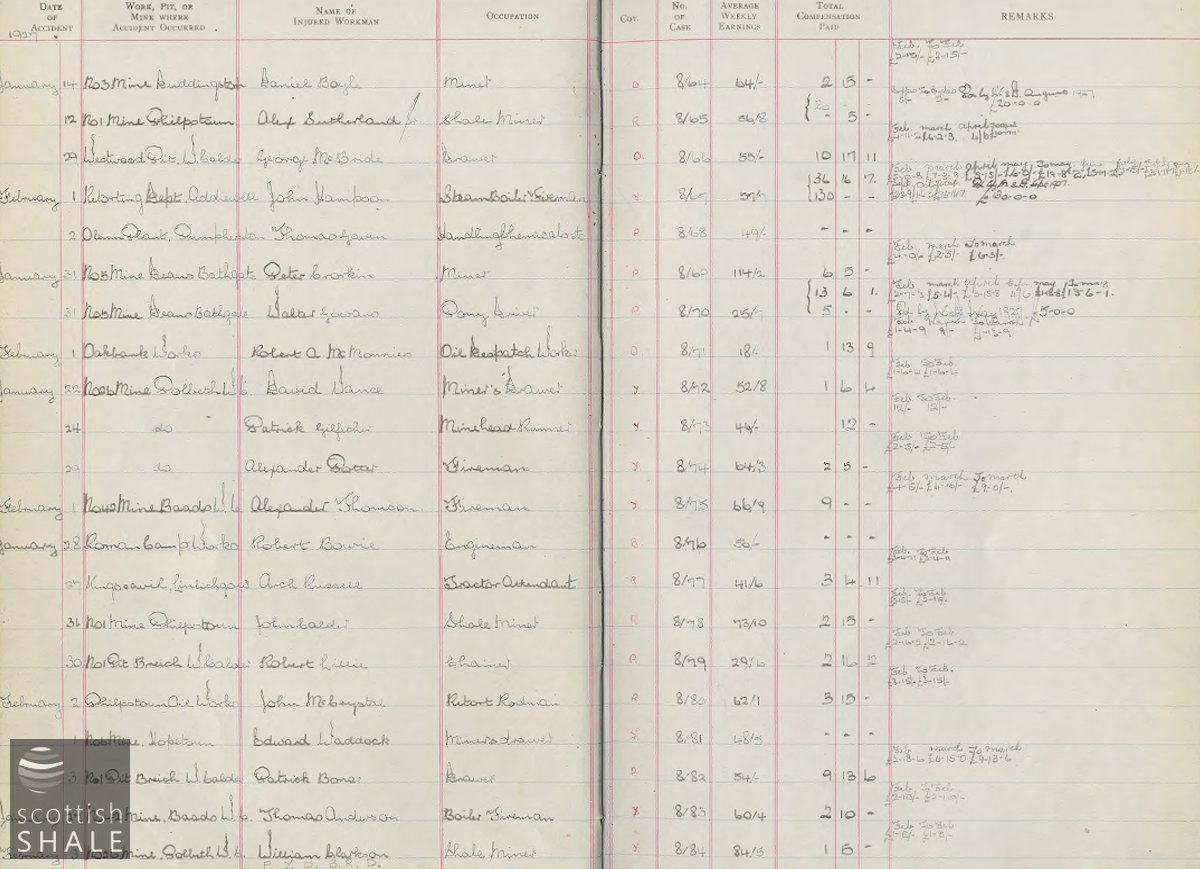 DATE OF ACCIDENT WORK, PIT, OR MINE WHERE ACCIDENT OCCURRED. NAME OF INJURED WORKMAN OCCUPATION COY. NO. OF CASE AVERAGE WEEKLY EARNINGS TOTAL COMPENSATION PAID REMARKS
1927.
Feb. To Feb
£2-15/- £2-15/-
January 14 No3 Mine Duddingston Daniel Boyle Miner O 8/64 64/- 2 15 -
12 No1 Mine Philpstoun Alex Sutherland Jr Shale Miner R 8/65 56/8 { 20 - - - 5 - August 1927 £20-0-0
29 Westwood Pit, W. Calder George McBride Drawer O. 8/66 55/- 10 17 11 Feb. march April
February 1 Retorting Dept. Addiewell John Hampson Steam Boiler Fireman Y 8/67 57/7 { 36 16 7. 130 - -
2 Plant, Pumpherston Thomas Gavin Handling P 8/68 49/- - - -
January 31 No5 Mine Deans Bathgate Peter Corkin Miner P 8/69 114/2 6 5 - Feb, march To march £4-0/- £2-5/- £6-5/-
31 No5 Mine Deans Bathgate Walter Gowans Pony Driver P 8/70 25/7 { 13 6 1. 5 - - £13-6-1. £5-0-0
February 1 Oakbank Works Robert A. McMonnies Oil Despatch Worker O. 8/71 18/- 1 13 9 £1-4-9 9/- £1-13-9
January 22 No26 Mine Polbeth W.C. David Vance Miner's Drawer Y 8/72 52/8 1 6 4 Feb To Feb. £1-6-4 £1-6-4
24 do Patrick Minehead Runner Y 8/73 46/- 12 - Feb. To Feb. 12/- 12/-
29 do Alexander Potter Fireman Y. 8/74 64/3 2 5 - Feb To Feb £2-5/- £2-5/-
February 1 No42 Mine Baads W.C. Alexander Thomson Fireman Y. 8/75 66/9 9 - - Feb, march To march £4-5/- £4-15/- £9-0/-
January 28 Roman Camp Works Robert Bowie Engineman B. 8/76 56/- - - -
27 Kingscavil, Linlithgow Arch Russell Tractor Attendant R 8/77 41/6 3 4 11 Feb. To Feb £3-4-11 £3-4-11
31 No1 Mine Philpstoun John Calder Shale Miner R 8/78 73/10 2 15 - Feb To Feb £2-15/- £2-15/-
30 No1 Pit Breich W. Calder Robert Lillie Chainer P. 8/79 29/6 2 16 2 Feb To Feb £2-16-2 £2-16-2
February 2 Philpstoun Oil Works John McCrystal Retort Rodman R 8/80 62/1 3 15 - Feb To Feb. £3-15/- £3-15/-
1 No6 Mine, Hopetoun Edward Waddock Miners drawer S. 8/81 48/5 - - -
3 No1 Pit Breich W. Calder Patrick Bonar Drawer P. 8/82 54/- 9 13 6 Feb march To march £2-18-6 £6-15-0 £9-13-6
Mine, Baads W.C. Thomas Anderson Boiler Fireman Y 8/83 60/4 2 10 - Feb To Feb £2-10/- £2-10/-
3 No26 Mine, Polbeth W.C. William Clarkson Shale Miner Y 8/84 84/5 1 5 - Feb To Feb £1-5/- £1-5/-
P. Y. O. B. R. D.
SCOTTISH
SHALE